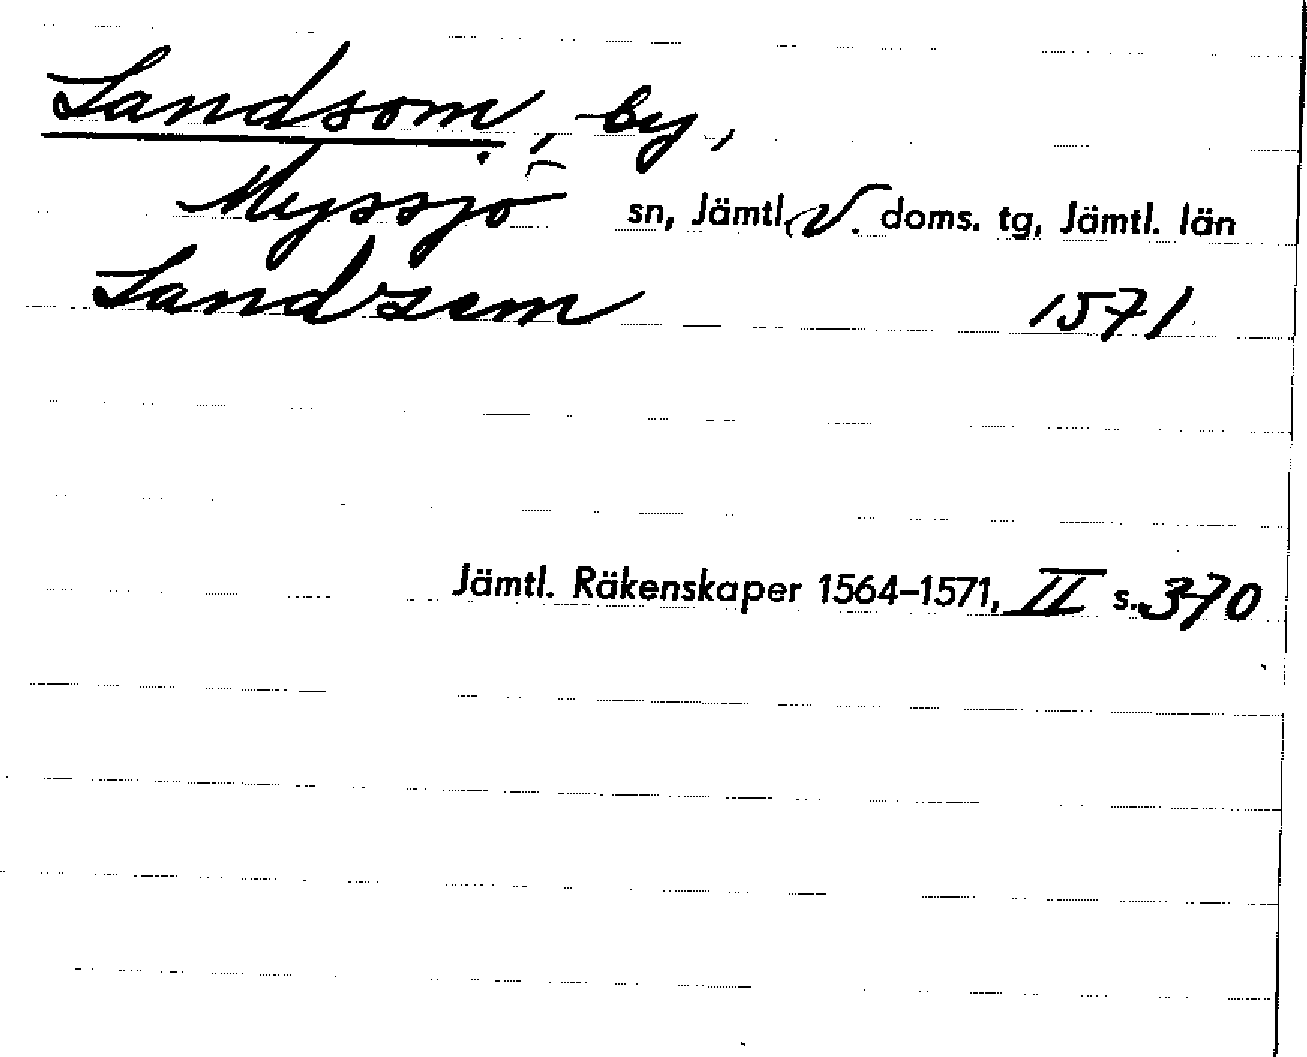 Landsom, by,
Myssjö sn, Jämtl. V. doms. tg, Jämtl. län
Landzem 1571
Jämtl. Räkenskaper 1564–1571, II s. 370